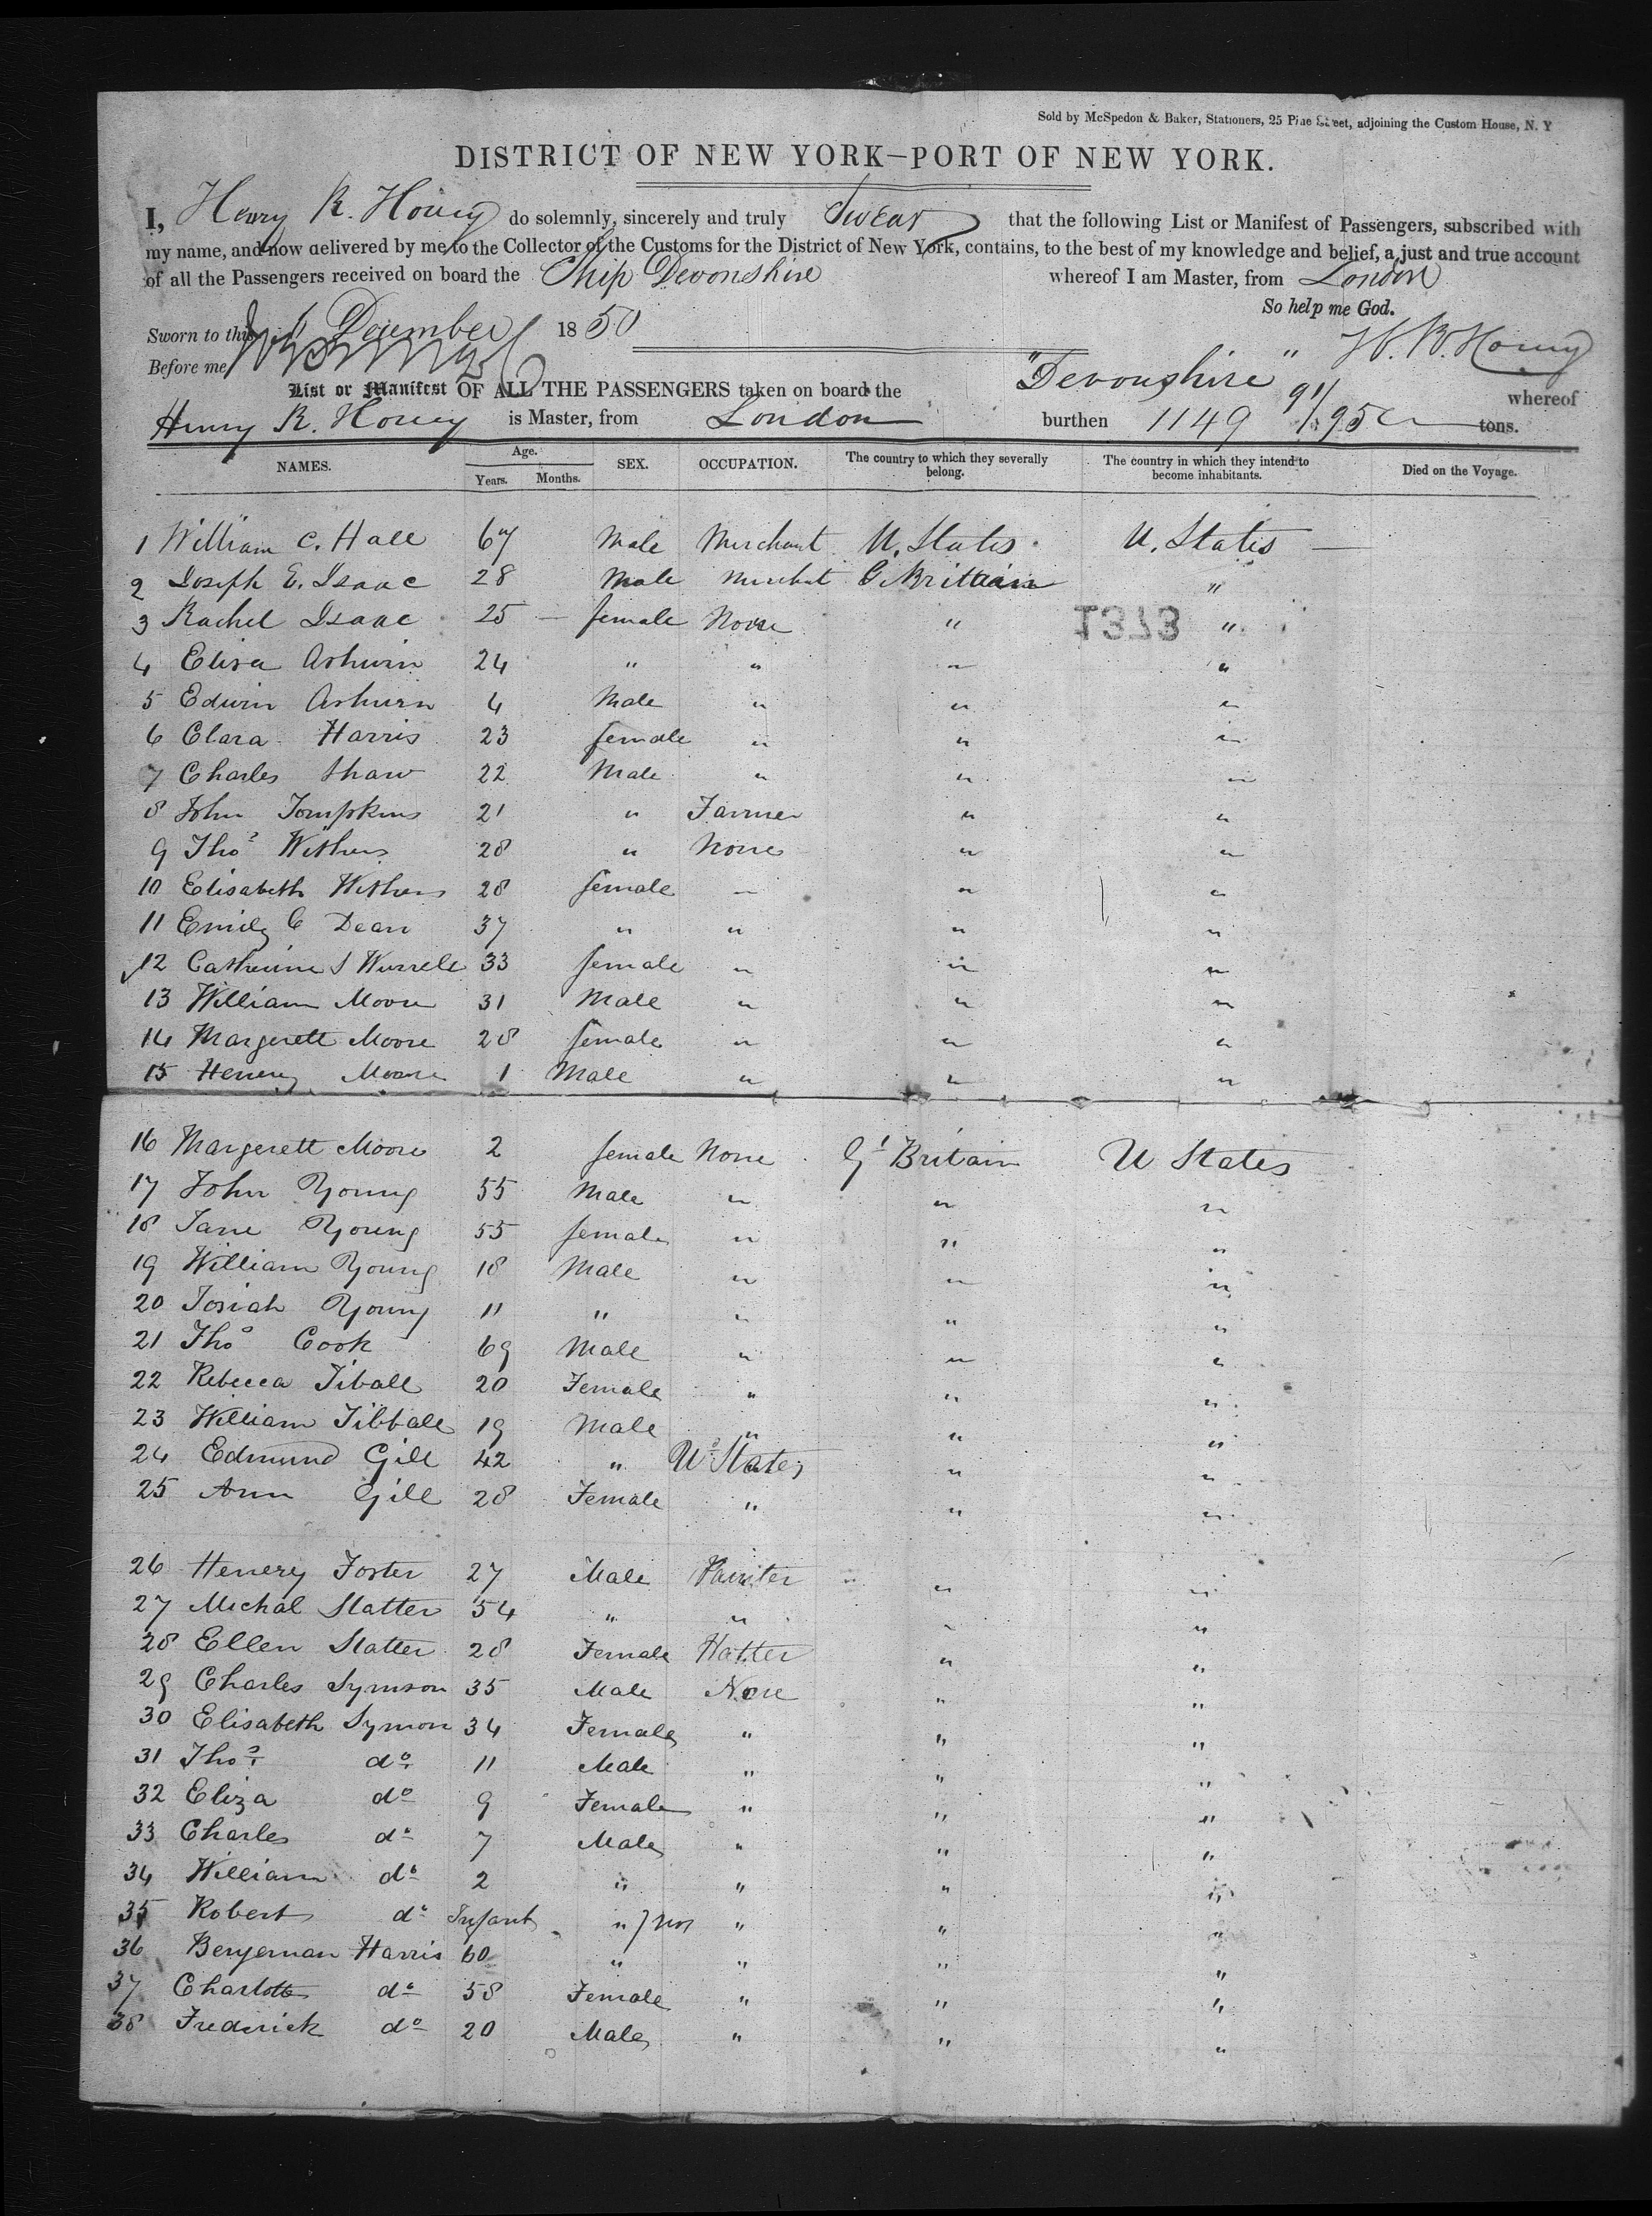 Sold by McSpedon & Baker, Stationers, 25 Pine Street, adjoining the Custom House, N. Y
DISTRICT OF NEW YORK—PORT OF NEW YORK.
I, Henry R. Hovey do solemnly, sincerely and truly Swear that the following List or Manifest of Passengers, subscribed with
my name, and now delivered by me to the Collector of the Customs for the District of New York, contains, to the best of my knowledge and belief, a just and true account
of all the Passengers received on board the Ship Devonshire whereof I am Master, from London
So help me God.
Sworn to this December 1850
Before me H. R. Hovey
List or Manifest OF ALL THE PASSENGERS taken on board the "Devonshire" whereof
Henry R. Hovey is Master, from London burthen 1149 91/95 tons.
NAMES. Age. Years. Months. SEX. OCCUPATION. The country to which they severally belong. The country in which they intend to become inhabitants. Died on the Voyage.
1 William C. Hall 67 Male Merchant U. States U. States —
2 Joseph E. Isaac 28 Male Merchant G Brittain "
3 Rachel Isaac 25 — female None " 1373 "
4 Elisa Ashwin 24 " " " "
5 Edwin Ashwin 4 Male " " "
6 Clara Harris 23 female " " "
7 Charles Shaw 22 Male " " "
8 John Tompkins 21 " Farmer " "
9 Thos Withers 28 " None " "
10 Elisabeth Withers 28 female — " "
11 Emily C Dean 37 " " " "
12 Catherine S Wurrell 33 female " " "
13 William Moore 31 Male " " "
14 Margerett Moore 28 female " " "
15 Henery Moore 1 Male " " "
16 Margerett Moore 2 female None Gt Britain U States
17 John Young 55 Male " " "
18 Jane Young 55 female " " "
19 William Young 18 Male " " "
20 Josiah Young 11 " " " "
21 Thos Cook 69 Male " " "
22 Rebecca Tiball 20 Female " " "
23 William Tibball 19 Male " " "
24 Edmund Gill 42 " Ud States " "
25 Ann Gill 28 Female " " "
26 Henery Foster 27 Male Painter " "
27 Michal Slatter 54 " " " "
28 Ellen Slatter 28 Female Hatter " "
29 Charles Symson 35 Male None " "
30 Elisabeth Symon 34 Female " " "
31 Thos. do 11 Male " " "
32 Eliza do 9 Female " " "
33 Charles do 7 Male " " "
34 William do 2 " " " "
35 Robert do Infant " " " "
36 Benjeman Harris 60 " " " "
37 Charlotte do 58 Female " " "
38 Frederick do 20 Male " " "